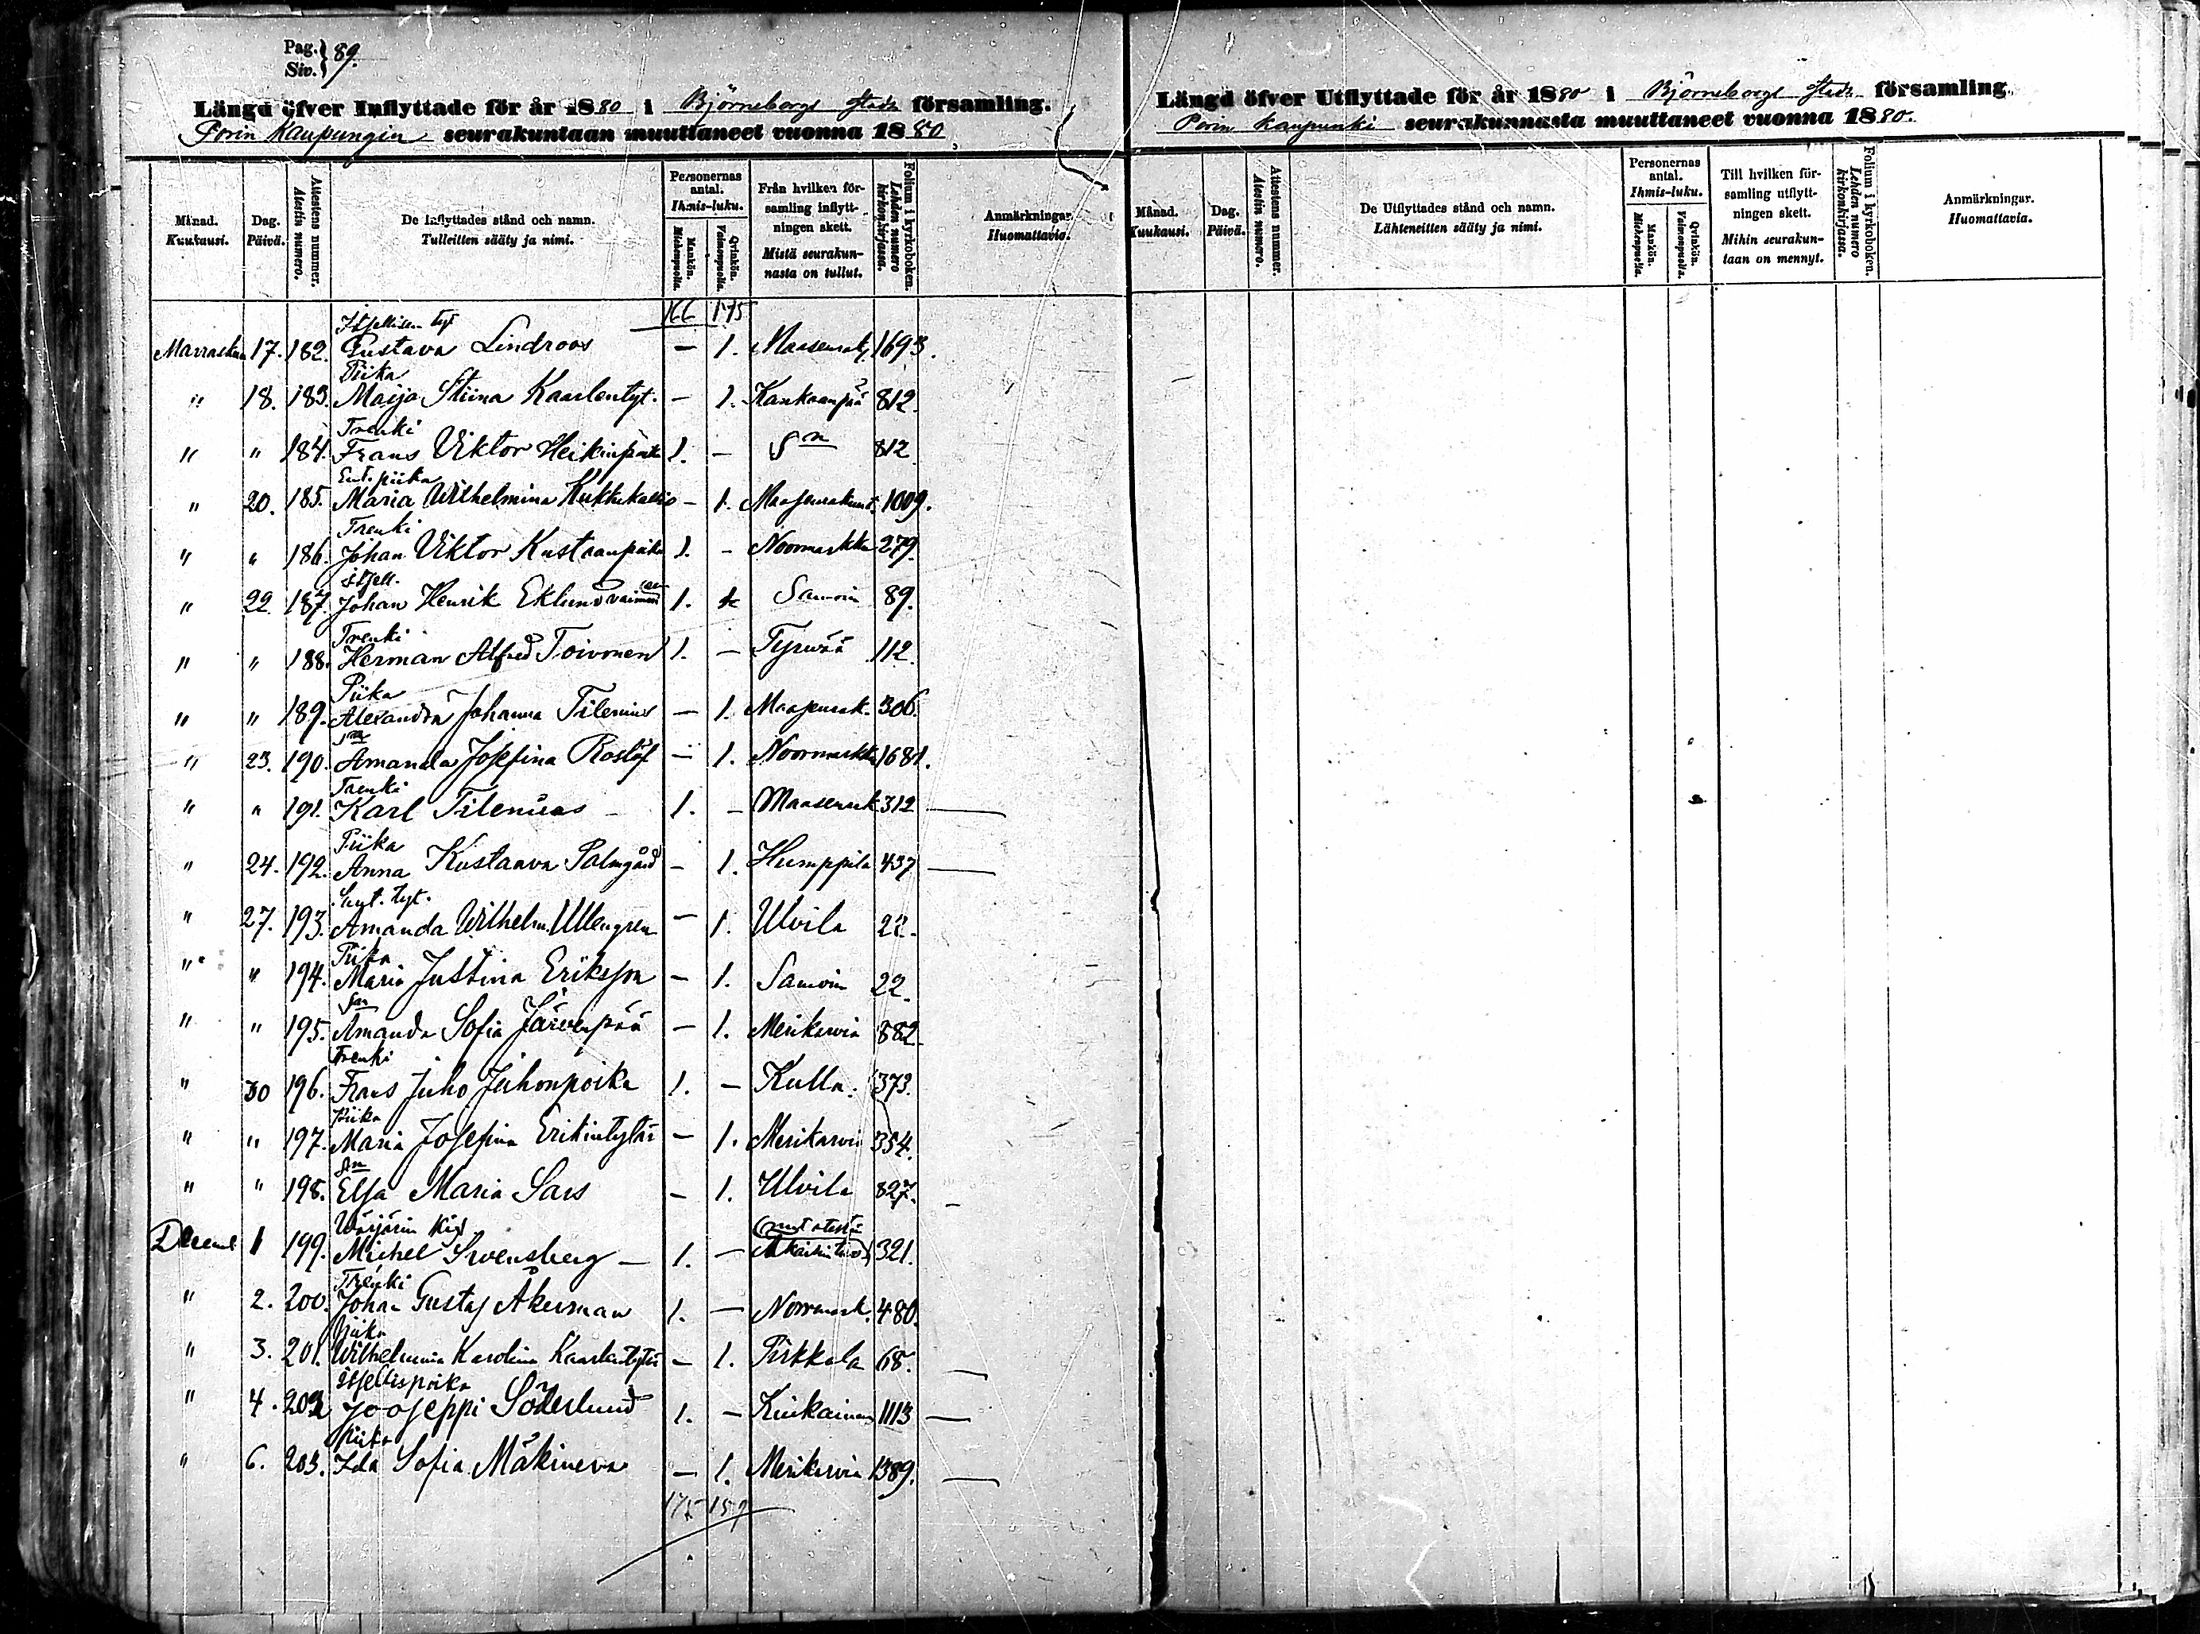 Pag. Siv. } 89.
Längd öfver Inflyttade för år 1880 i Björneborgs stads församling.
Porin Kaupungin seurakuntaan muuttaneet vuonna 1880.
Månad. Kuukausi.
Dag. Päivä.
Attestens nummer. Atestin numero.
De Inflyttades stånd och namn. Tulleitten sääty ja nimi.
Personernas antal. Ihmis-luku.
Mankön. Miehenpuolia.
Qvinkön. Vaimonpuolia.
Från hvilken församling inflyttningen skett. Mistä seurakunnasta on tullut.
Folium i kyrkoboken. Lehden numero kirkonkirjassa.
Anmärkningar. Huomattavia.
166 145
Itsellisen tyt
Marraskuu 17. 182. Gustava Lindroos — 1. Maaseurak. 1693.
Piika
" 18. 183. Maija Stiina Kaarlentyt. — 1. Kankaanpää 812.
Trenki
" " 184. Frans Viktor Heikinpoika 1. — Sn 812
Ent. piika
" 20. 185. Maria Wilhelmina Kukkukallio — 1. Maaseurakunt. 1009.
Trenki
" " 186. Johan Viktor Kustaanpoika 1. — Noormarkku 279.
itsell.
" 22. 187. Johan Henrik Eklund 1. Samoin 89.
Trenki
" " 188. Herman Alfred Toivonen 1. — Tyrwää 112.
Piika
" " 189. Alexandra Johanna Tilenius — 1. Maaseurak. 306.
Sn
" 23. 190. Amanda Josefina Roslöf — 1. Noormarkku 1681.
Trenki
" " 191. Karl Tilenius — 1. — Maaseurak 312
Piika
" 24. 192. Anna Kustaava Palmgård — 1. Humppila 437
tyt.
" 27. 193. Amanda Wilhelm. Ullengren — 1. Ulvila 22.
Piika
" " 194. Maria Justina Eriksson — 1. Samoin 22.
Sn
" " 195. Amanda Sofia Järvenpää — 1. Merikarvia 882.
Trenki
" 30 196. Frans Juho Juhonpoika 1. — Kulla. 373.
Piika
" " 197. Maria Josefina Erikintytär — 1. Merikarvia 354.
Sn
" " 198. Elsa Maria Sars — 1. Ulvila 827.
Wärjärin
Decemb 1 199. Michel Swensberg — 1. — 321.
Trenki
" 2. 200. Johan Gustaf Åkerman 1. — Norrmark. 480.
Piika
" 3. 201. Wilhelmina Karolina Kaarlentytär — 1. Pirkkala 68.
itsellispoika
" 4. 202 Jooseppi Söderlund 1. — Kiukainen 1113
Piika
" 6. 203. Ida Sofia Mäkineva — 1. Merikarvia 1389.
175 159
Längd öfver Utflyttade för år 1880 i Björneborgs stads församling.
Porin kaupunki seurakunnasta muuttaneet vuonna 1880.
Månad. Kuukausi.
Dag. Päivä.
Attestens nummer. Atestin numero.
De Utflyttades stånd och namn. Lähteneitten sääty ja nimi.
Personernas antal. Ihmis-luku.
Mankön. Miehenpuolia.
Qvinkön. Vaimonpuolia.
Till hvilken församling utflyttningen skett. Mihin seurakuntaan on mennyt.
Folium i kyrkoboken. Lehden numero kirkonkirjassa.
Anmärkningar. Huomattavia.